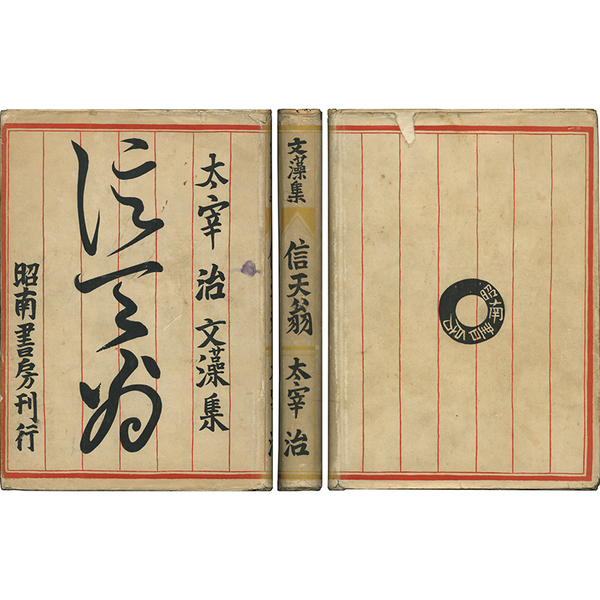 太宰 治 文藻集
信天翁
昭南書房刊行
文藻集
信天翁
太宰 治
昭南書房